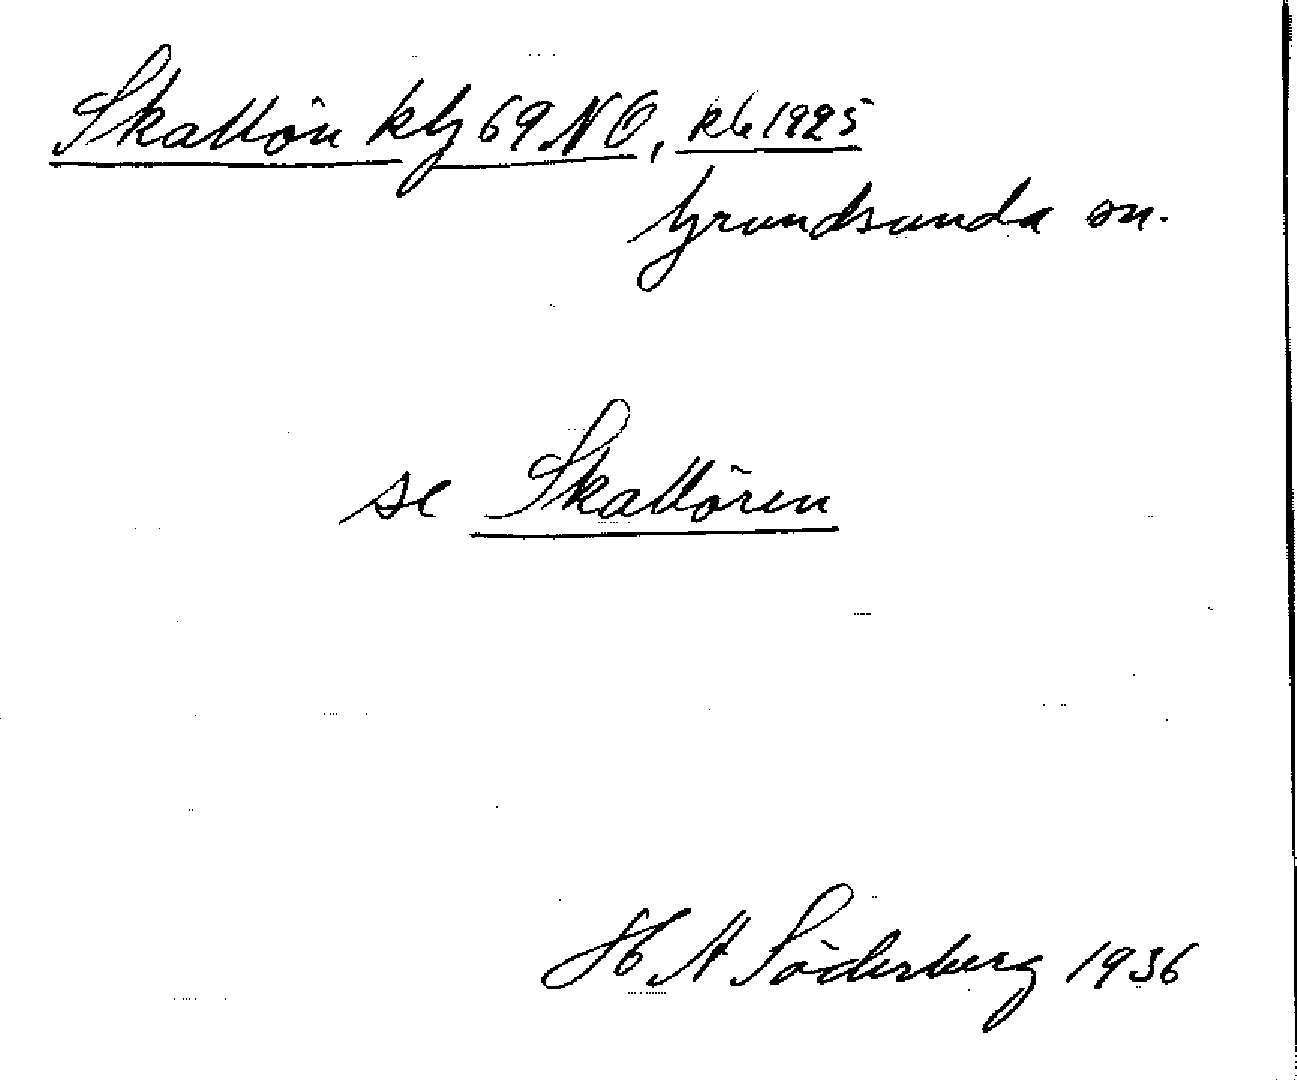 Skattön kbl 69 NO, rb 1925
Grundsunda sn.
se Skattören
H A Söderberg 1936